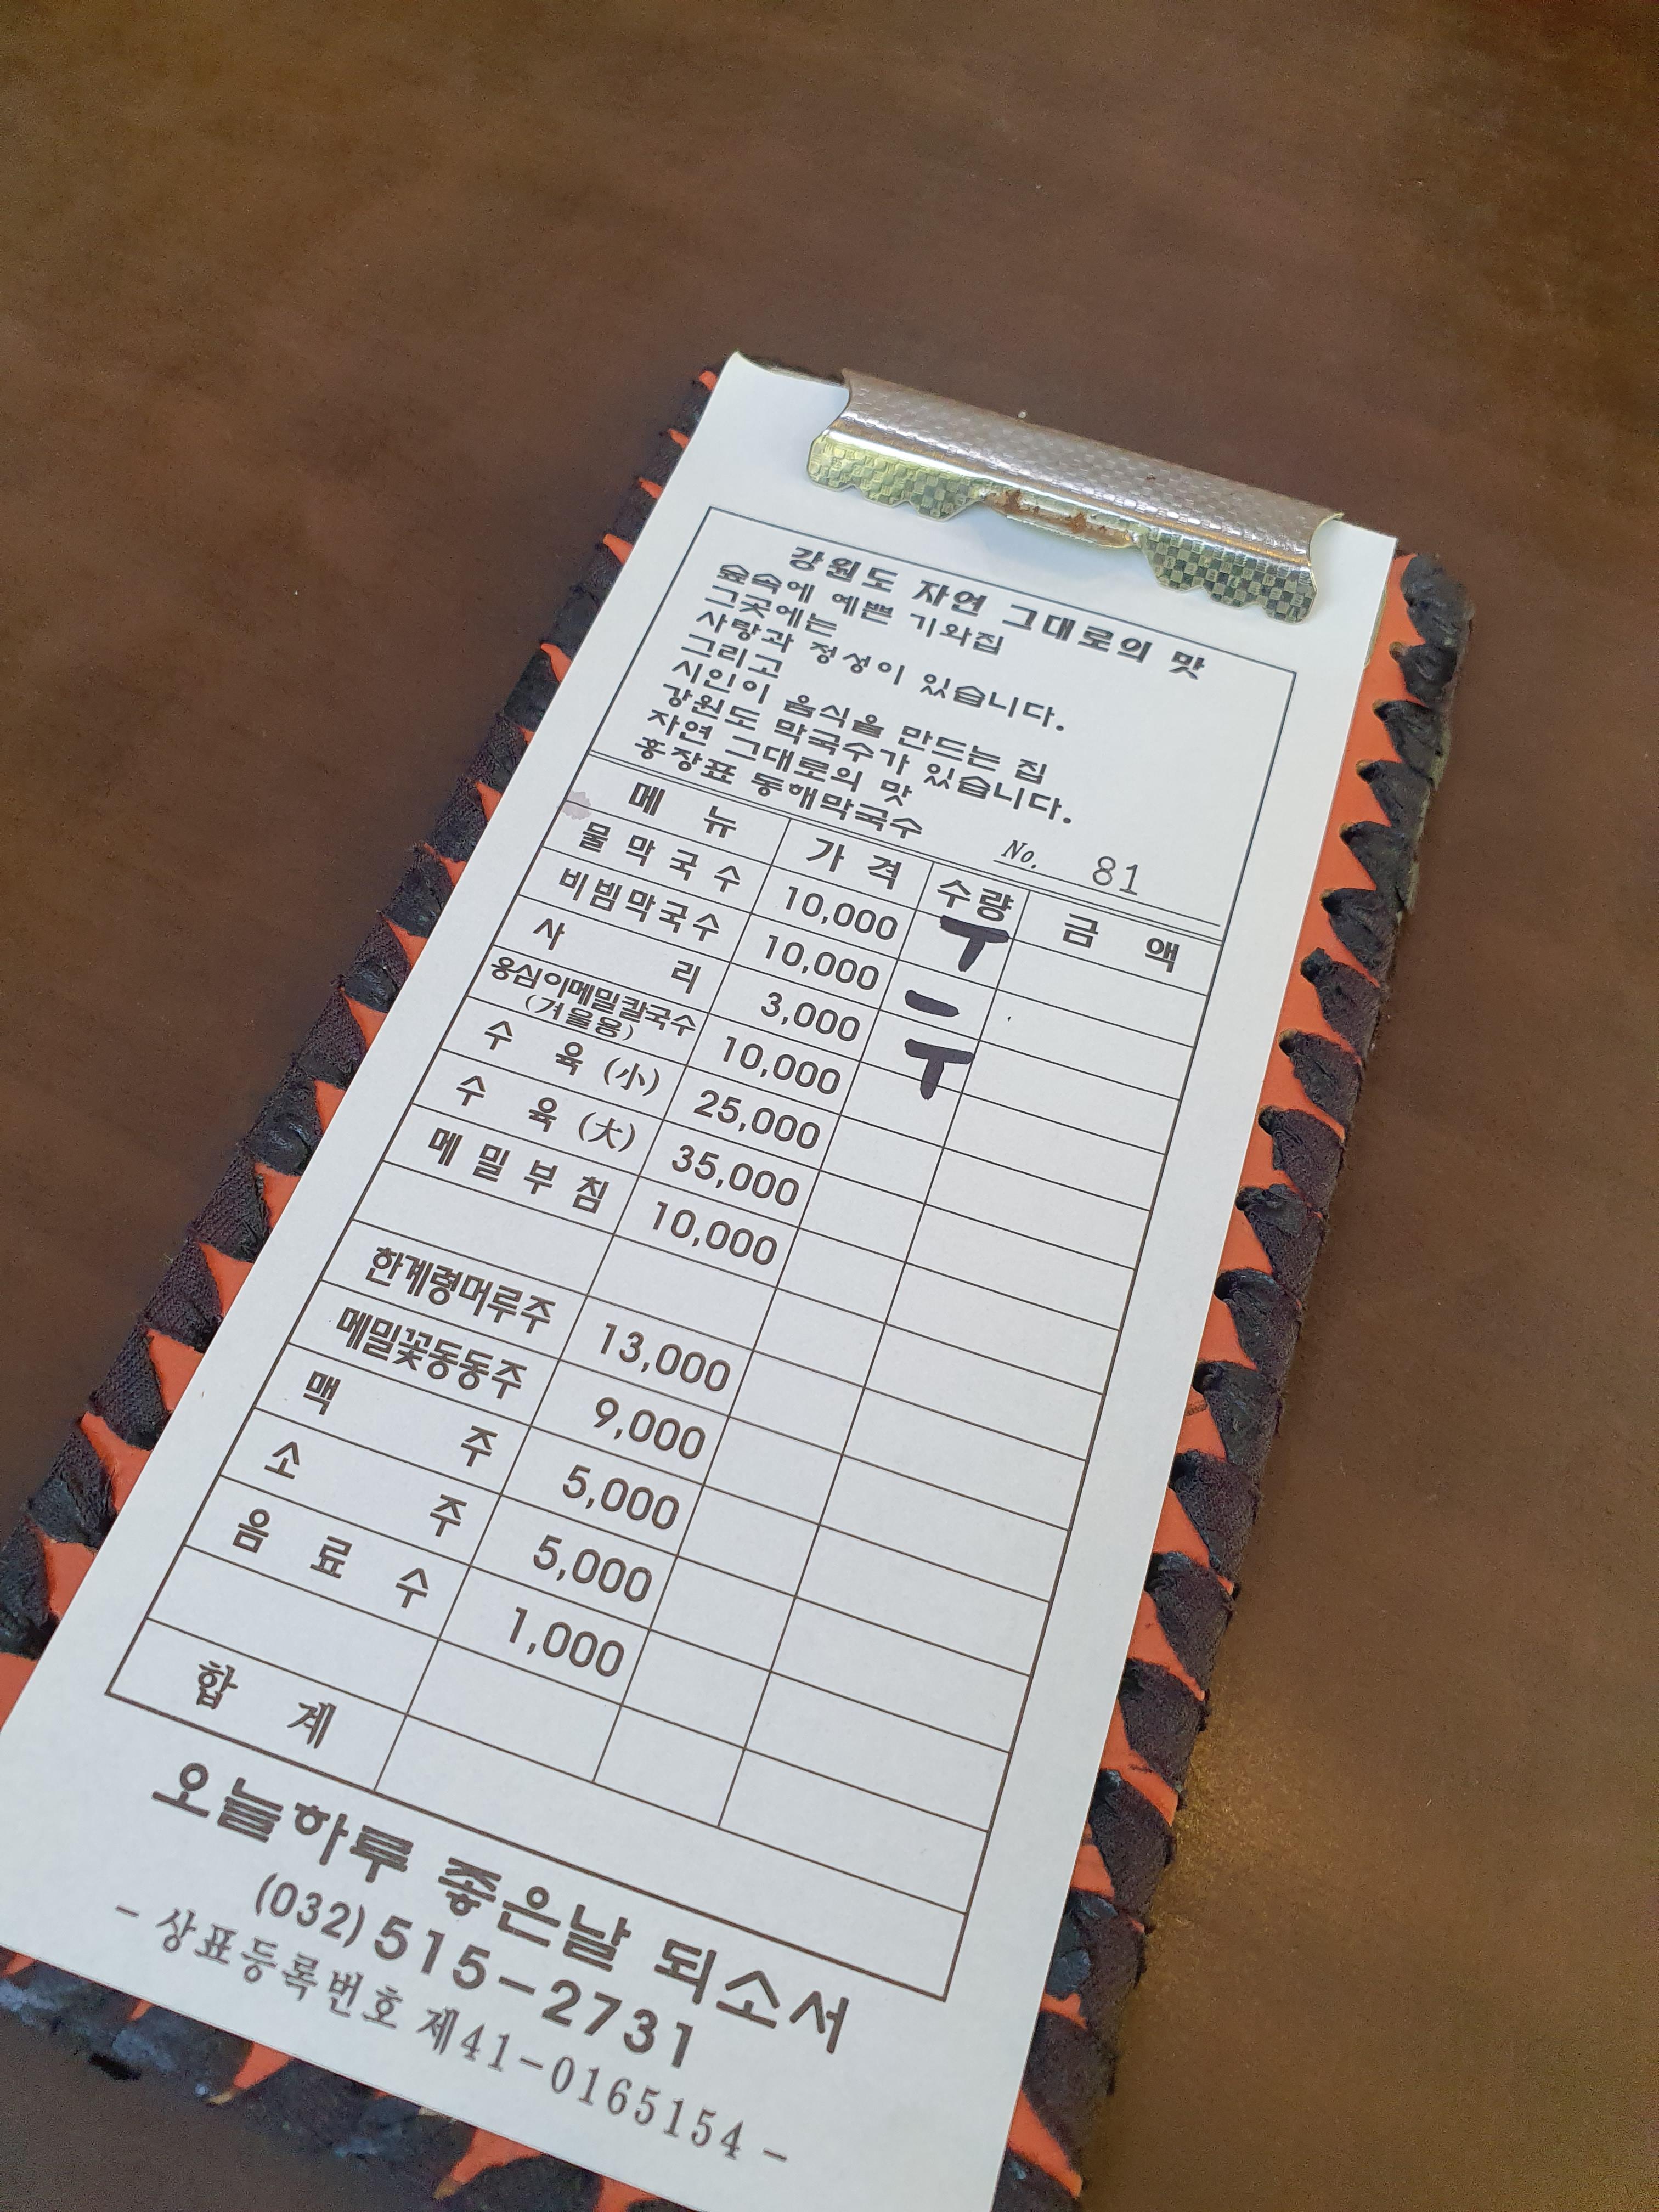 강원도 자연 그대로의 맛
숲속에 예쁜 기와집
그곳에는
사랑과 정성이 있습니다.
그리고
시인이 음식을 만드는 집
강원도 막국수가 있습니다.
자연 그대로의 맛
홍장표 동해막국수
No. 81
메 뉴 가 격 수량 금 액
물 막 국 수 10,000 T
비빔막국수 10,000 一
사 리 3,000 T
옹심이메밀칼국수 10,000
(겨울용)
수 육 (小) 25,000
수 육 (大) 35,000
메 밀 부 침 10,000
한계령머루주 13,000
메밀꽃동동주 9,000
맥 주 5,000
소 주 5,000
음 료 수 1,000
합 계
오늘하루 좋은날 되소서
(032) 515-2731
- 상표등록번호 제41-0165154 -